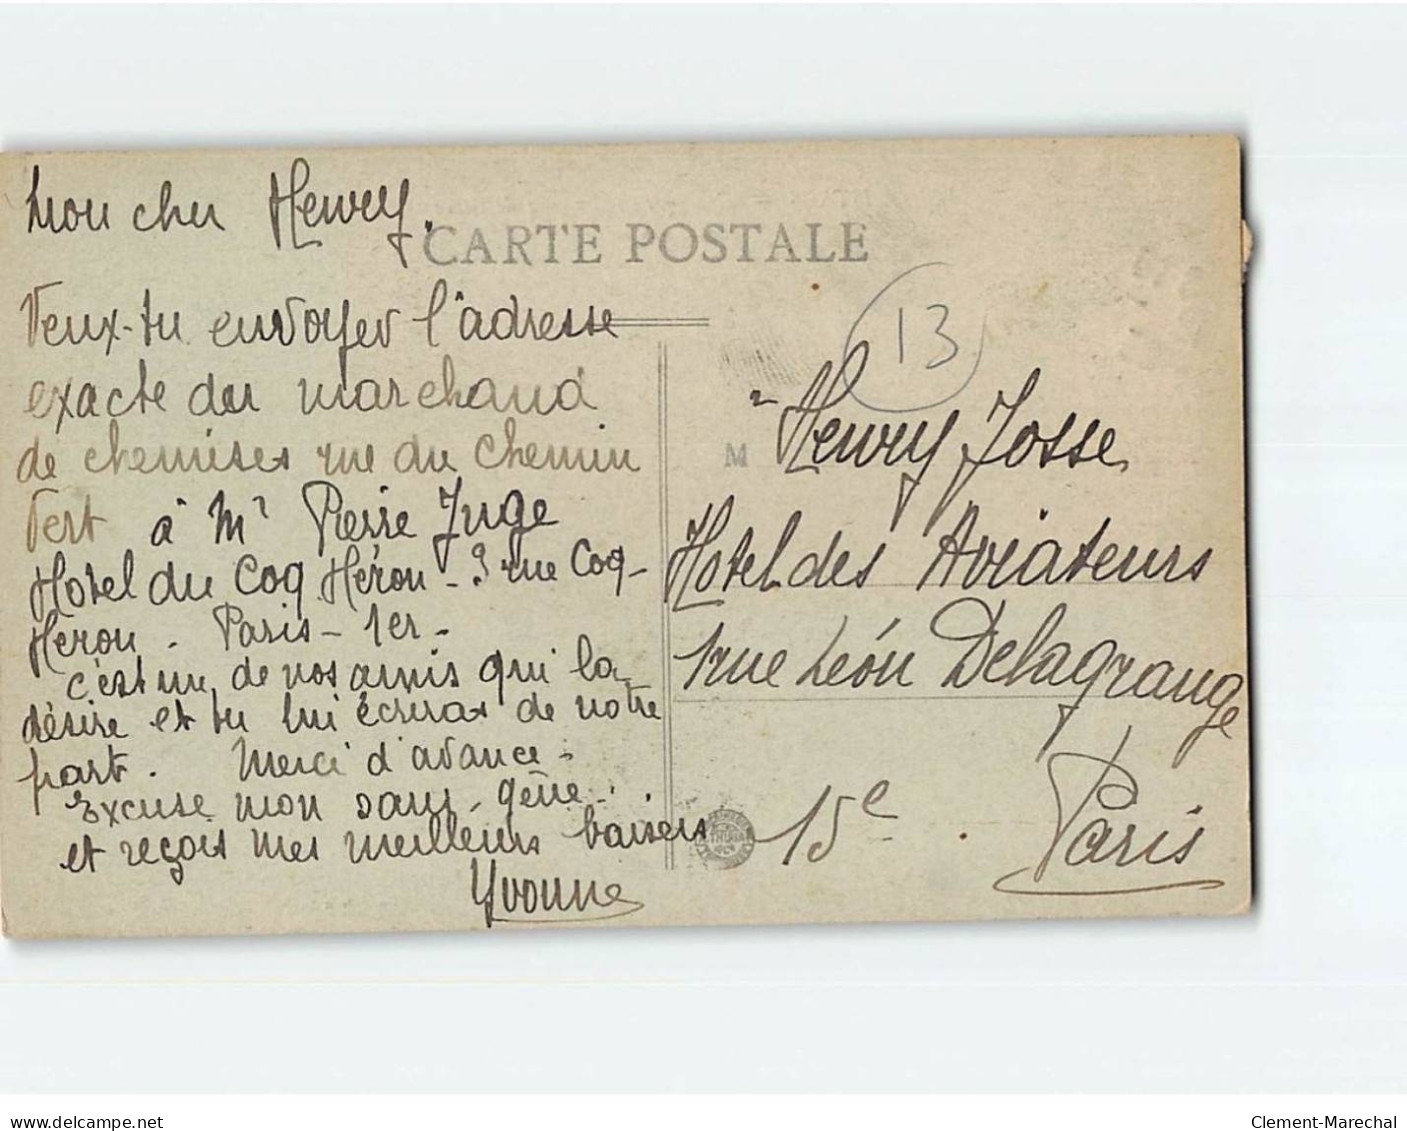 Mon cher Henry.
CARTE POSTALE
Veux-tu envoyer l'adresse
exacte du marchand
de chemises rue du Chemin
Vert à Mr Pierre Juge
Hotel du Coq Héron - 3 rue Coq-
Héron - Paris - 1er -
c'est un de nos amis qui la
désire et tu lui écriras de notre
part. Merci d'avance -
Excuse mon sans-gêne -
et reçois mes meilleurs baisers
Yvonne
13
M Henry Josse
Hotel des Aviateurs
1 rue Léon Delagrange
15e Paris
www.delcampe.net
Clement-Marechal